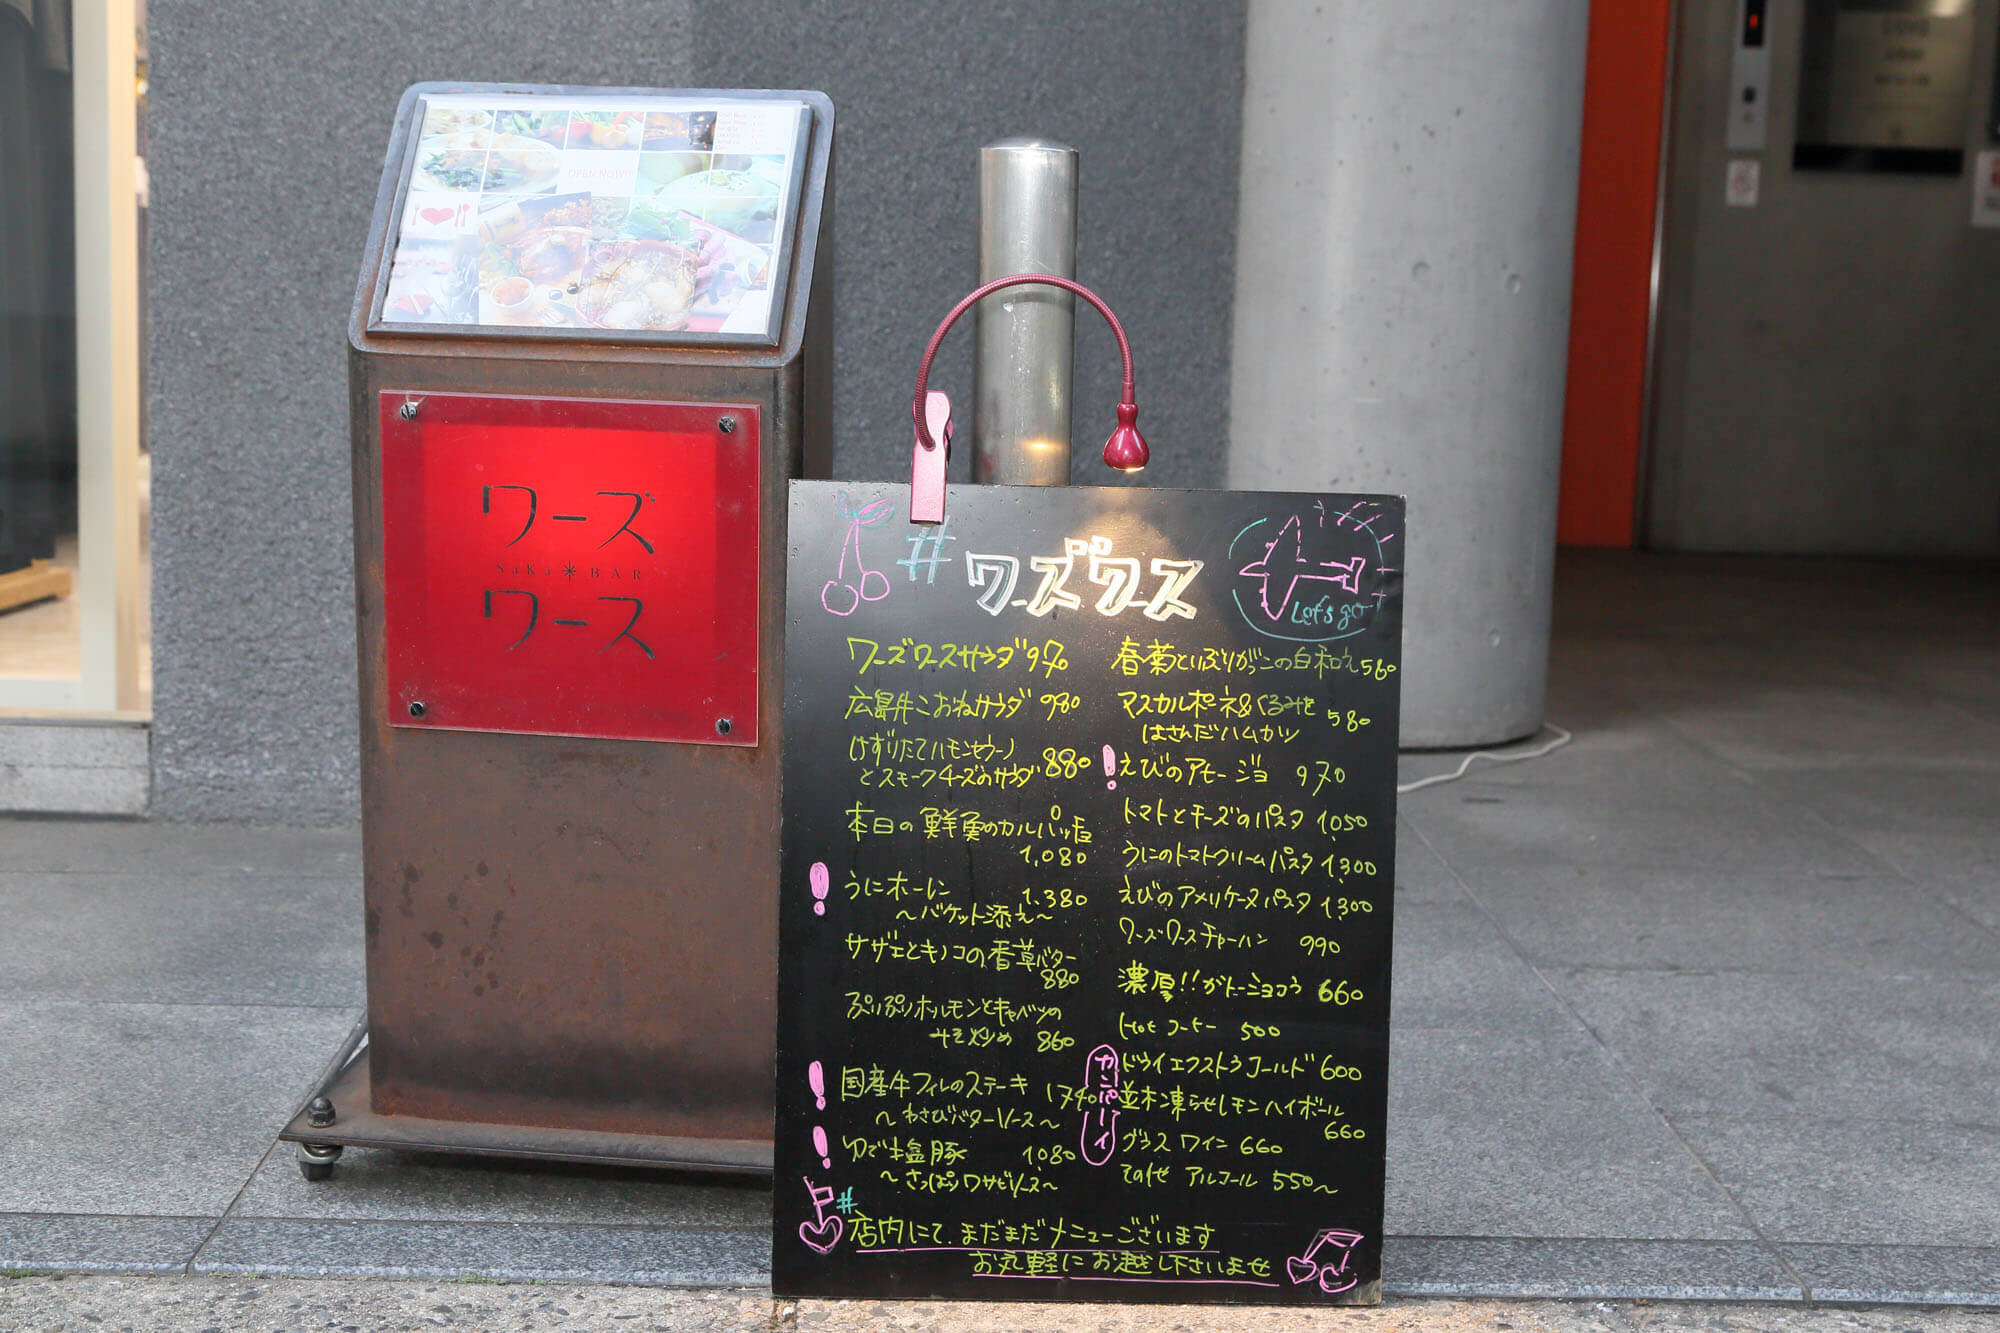 OPEN NOW!!
ワーズ
SaKa BAR
ワース
#ワーズワース
Let's go
ワーズワースサラダ 970
広島牛こおねサラダ 980
けずりたてハモンセラーノ
とスモークチーズのサラダ 880
本日の鮮魚のカルパッチョ
1,080
! うにホーレン 1,380
～バケット添え～
サザエとキノコの香草バター
880
ぷりぷりホルモンとキャベツの
みそ炒め 860
! 国産牛フィレのステーキ 1740
～わさびバターソース～
! ゆで塩豚 1,080
～さっぱりワサビソース～
春菊といぶりがっこの白和え 580
マスカルポーネ&くるみを
はさんだハムカツ 580
! えびのアヒージョ 970
トマトとチーズのパスタ 1,050
うにのトマトクリームパスタ 1,300
えびのアメリケーヌパスタ 1,300
ワーズワースチャーハン 990
濃厚!!ガトーショコラ 660
Hot コーヒー 500
カンパーイ
ドライエクストラコールド 600
並木凍らせレモンハイボール
660
グラスワイン 660
その他 アルコール 550～
#店内にて、まだまだメニューございます
お気軽にお越し下さいませ